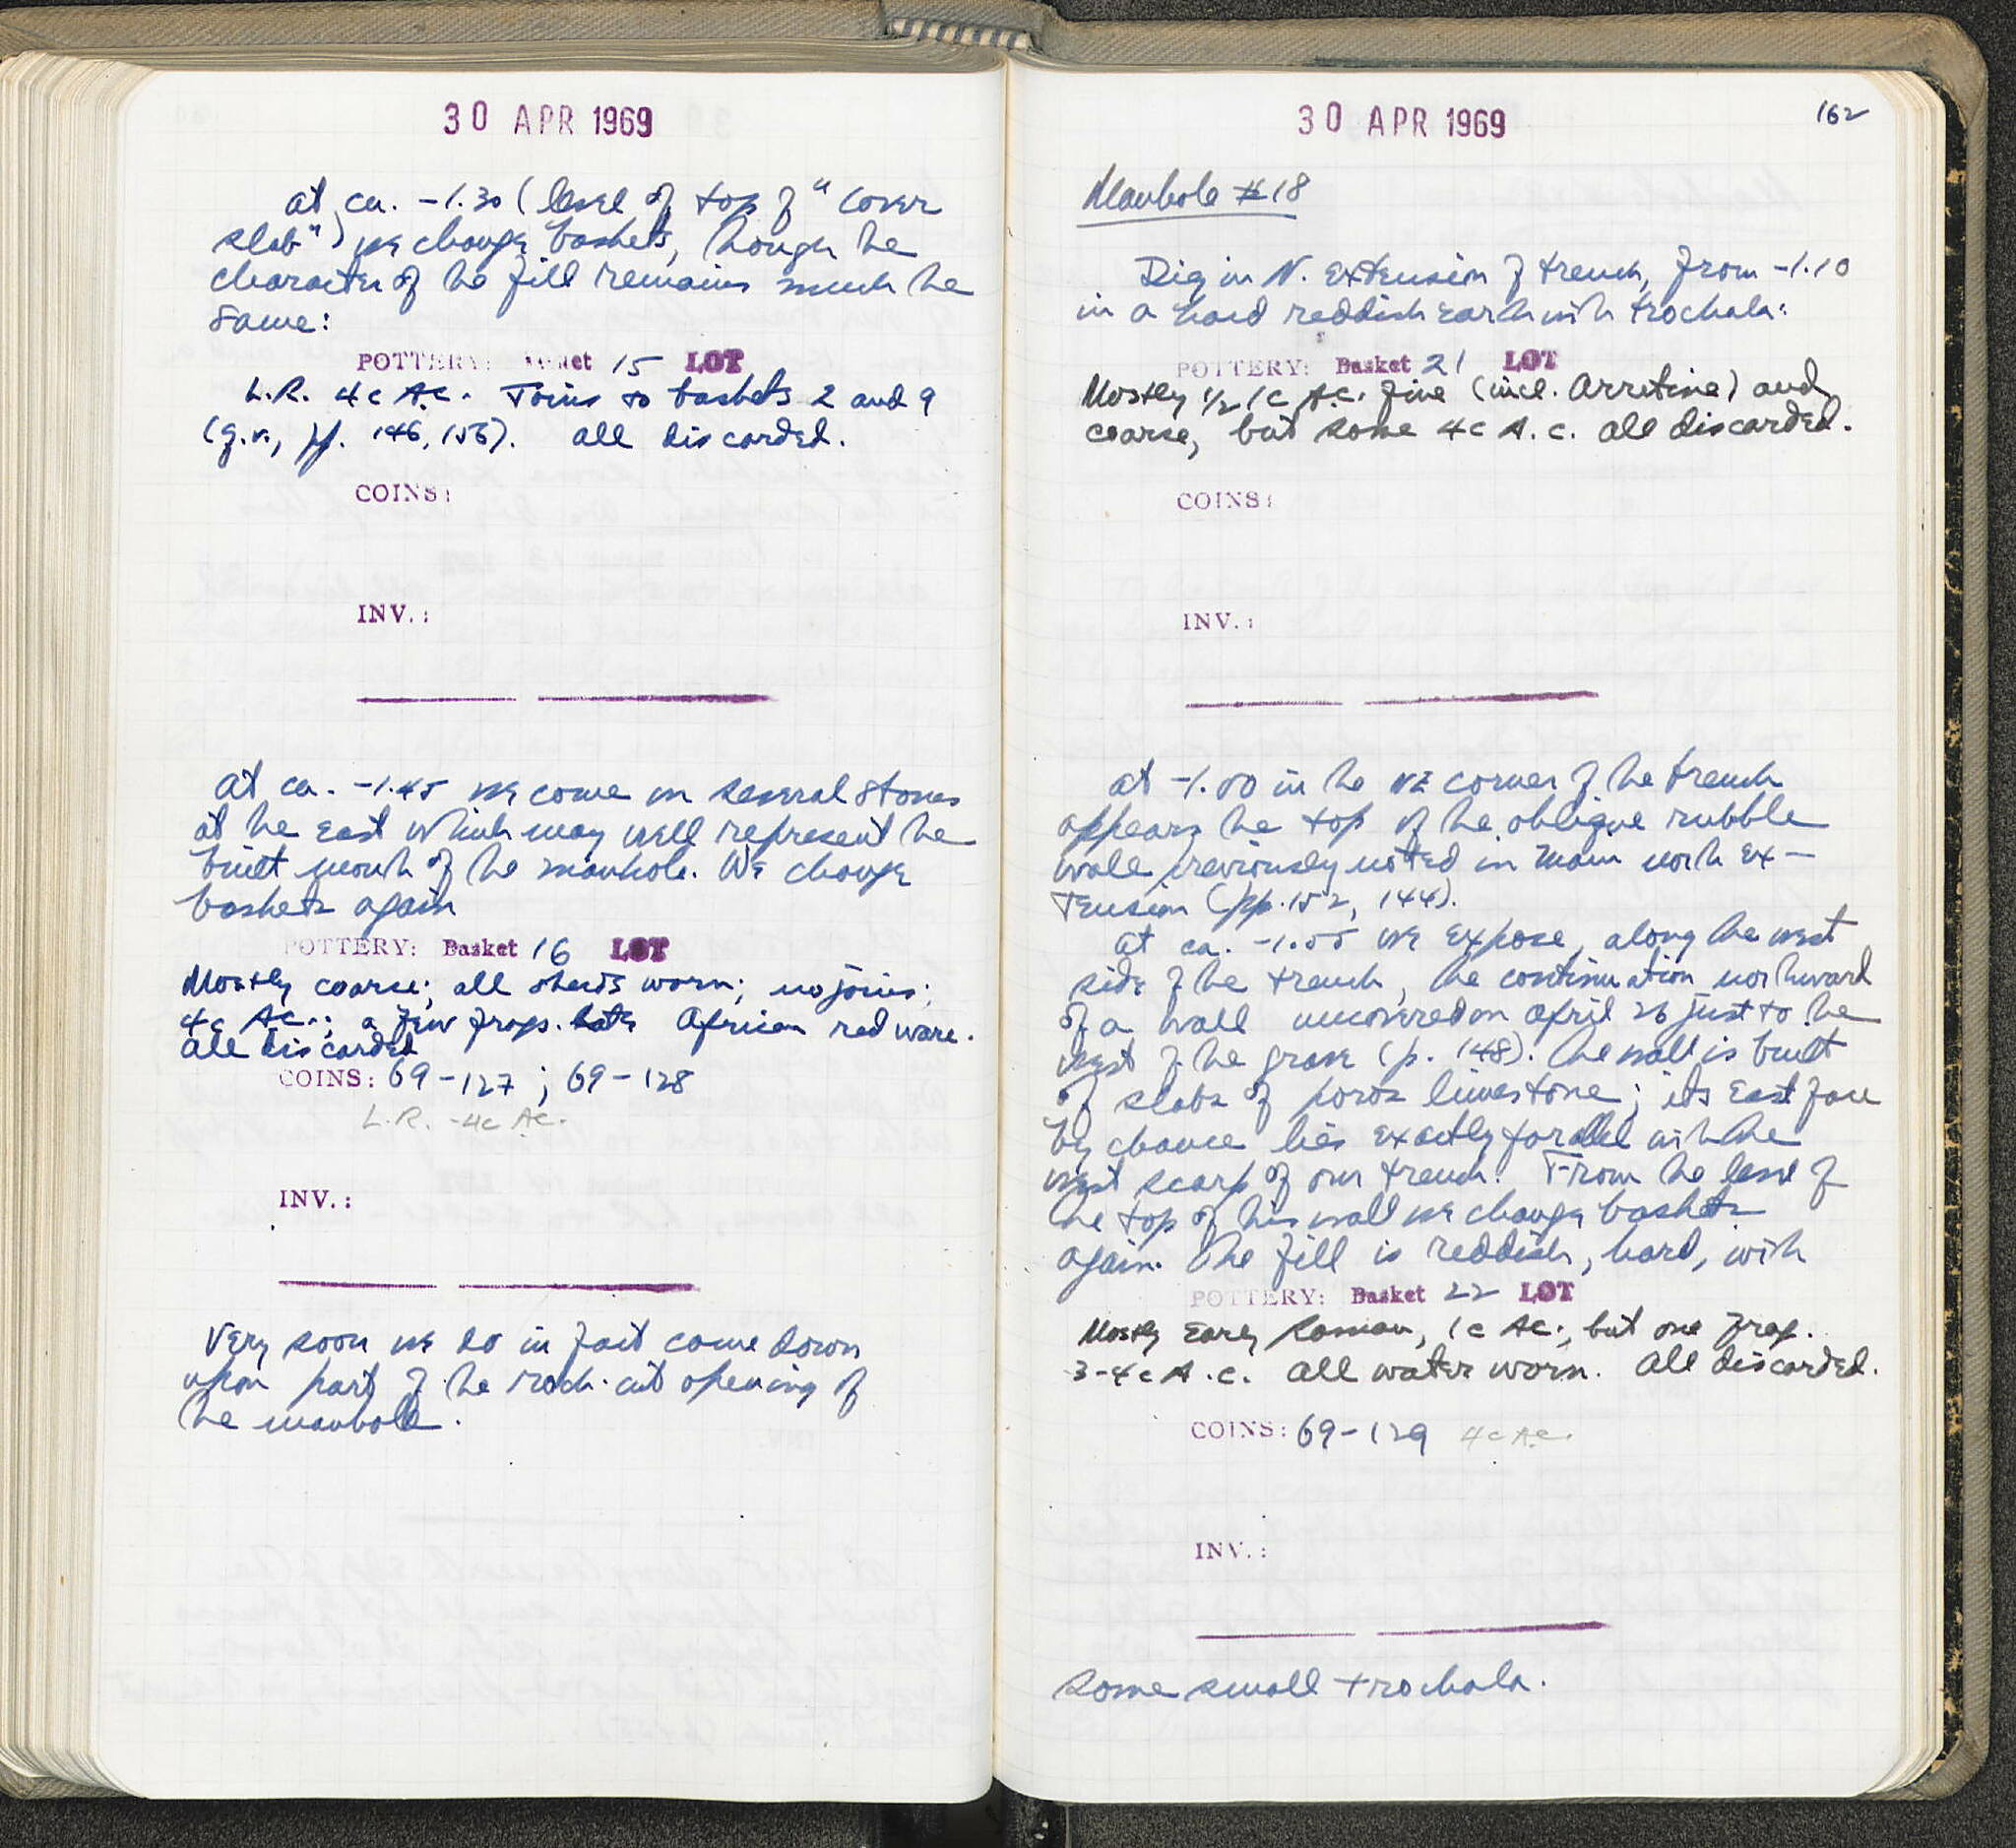 30 APR 1969
at ca. -1.30 (level of top of "cover
slab") we change baskets, though the
character of the fill remains much the
same:
POTTERY: Basket 15 LOT
L.R. 4c A.C. Joins to baskets 2 and 9
(q.v., pp. 146, 156). all discarded.
COINS:
INV.:
at ca. -1.45 we come on several stones
at the east which may well represent the
built mouth of the manhole. We change
baskets again
POTTERY: Basket 16 LOT
Mostly coarse; all sherds worn; no joins;
4c A.C.; a few frags. late African red ware.
all discarded
COINS: 69-127; 69-128
L.R. -4c A.C.
INV.:
Very soon we do in fact come down
upon part of the rock-cut opening of
the manhole.
30 APR 1969
162
Manhole #18
Dig in N. extension of trench, from -1.10
in a hard reddish earth with trochala:
POTTERY: Basket 21 LOT
Mostly 1/2 1c A.C. fine (incl. Arretine) and
coarse, but some 4c A.C. all discarded.
COINS:
INV.:
at -1.50 in the NE corner of the trench
appears the top of the oblique rubble
wall previously noted in main north ex-
tension (pp. 152, 144).
at ca. -1.55 we expose, along the west
side of the trench, the continuation northward
of a wall uncovered on April 26 just to the
west of the grave (p. 148). The wall is built
of slabs of poros limestone; its east face
by chance lies exactly parallel with the
west scarp of our trench. From the level of
the top of this wall we change baskets
again. The fill is reddish, hard, with
POTTERY: Basket 22 LOT
Mostly Early Roman, 1c A.C., but one frag.
3-4c A.C. all water worn. All discarded.
COINS: 69-129 4c A.C.
INV.:
some small trochala.